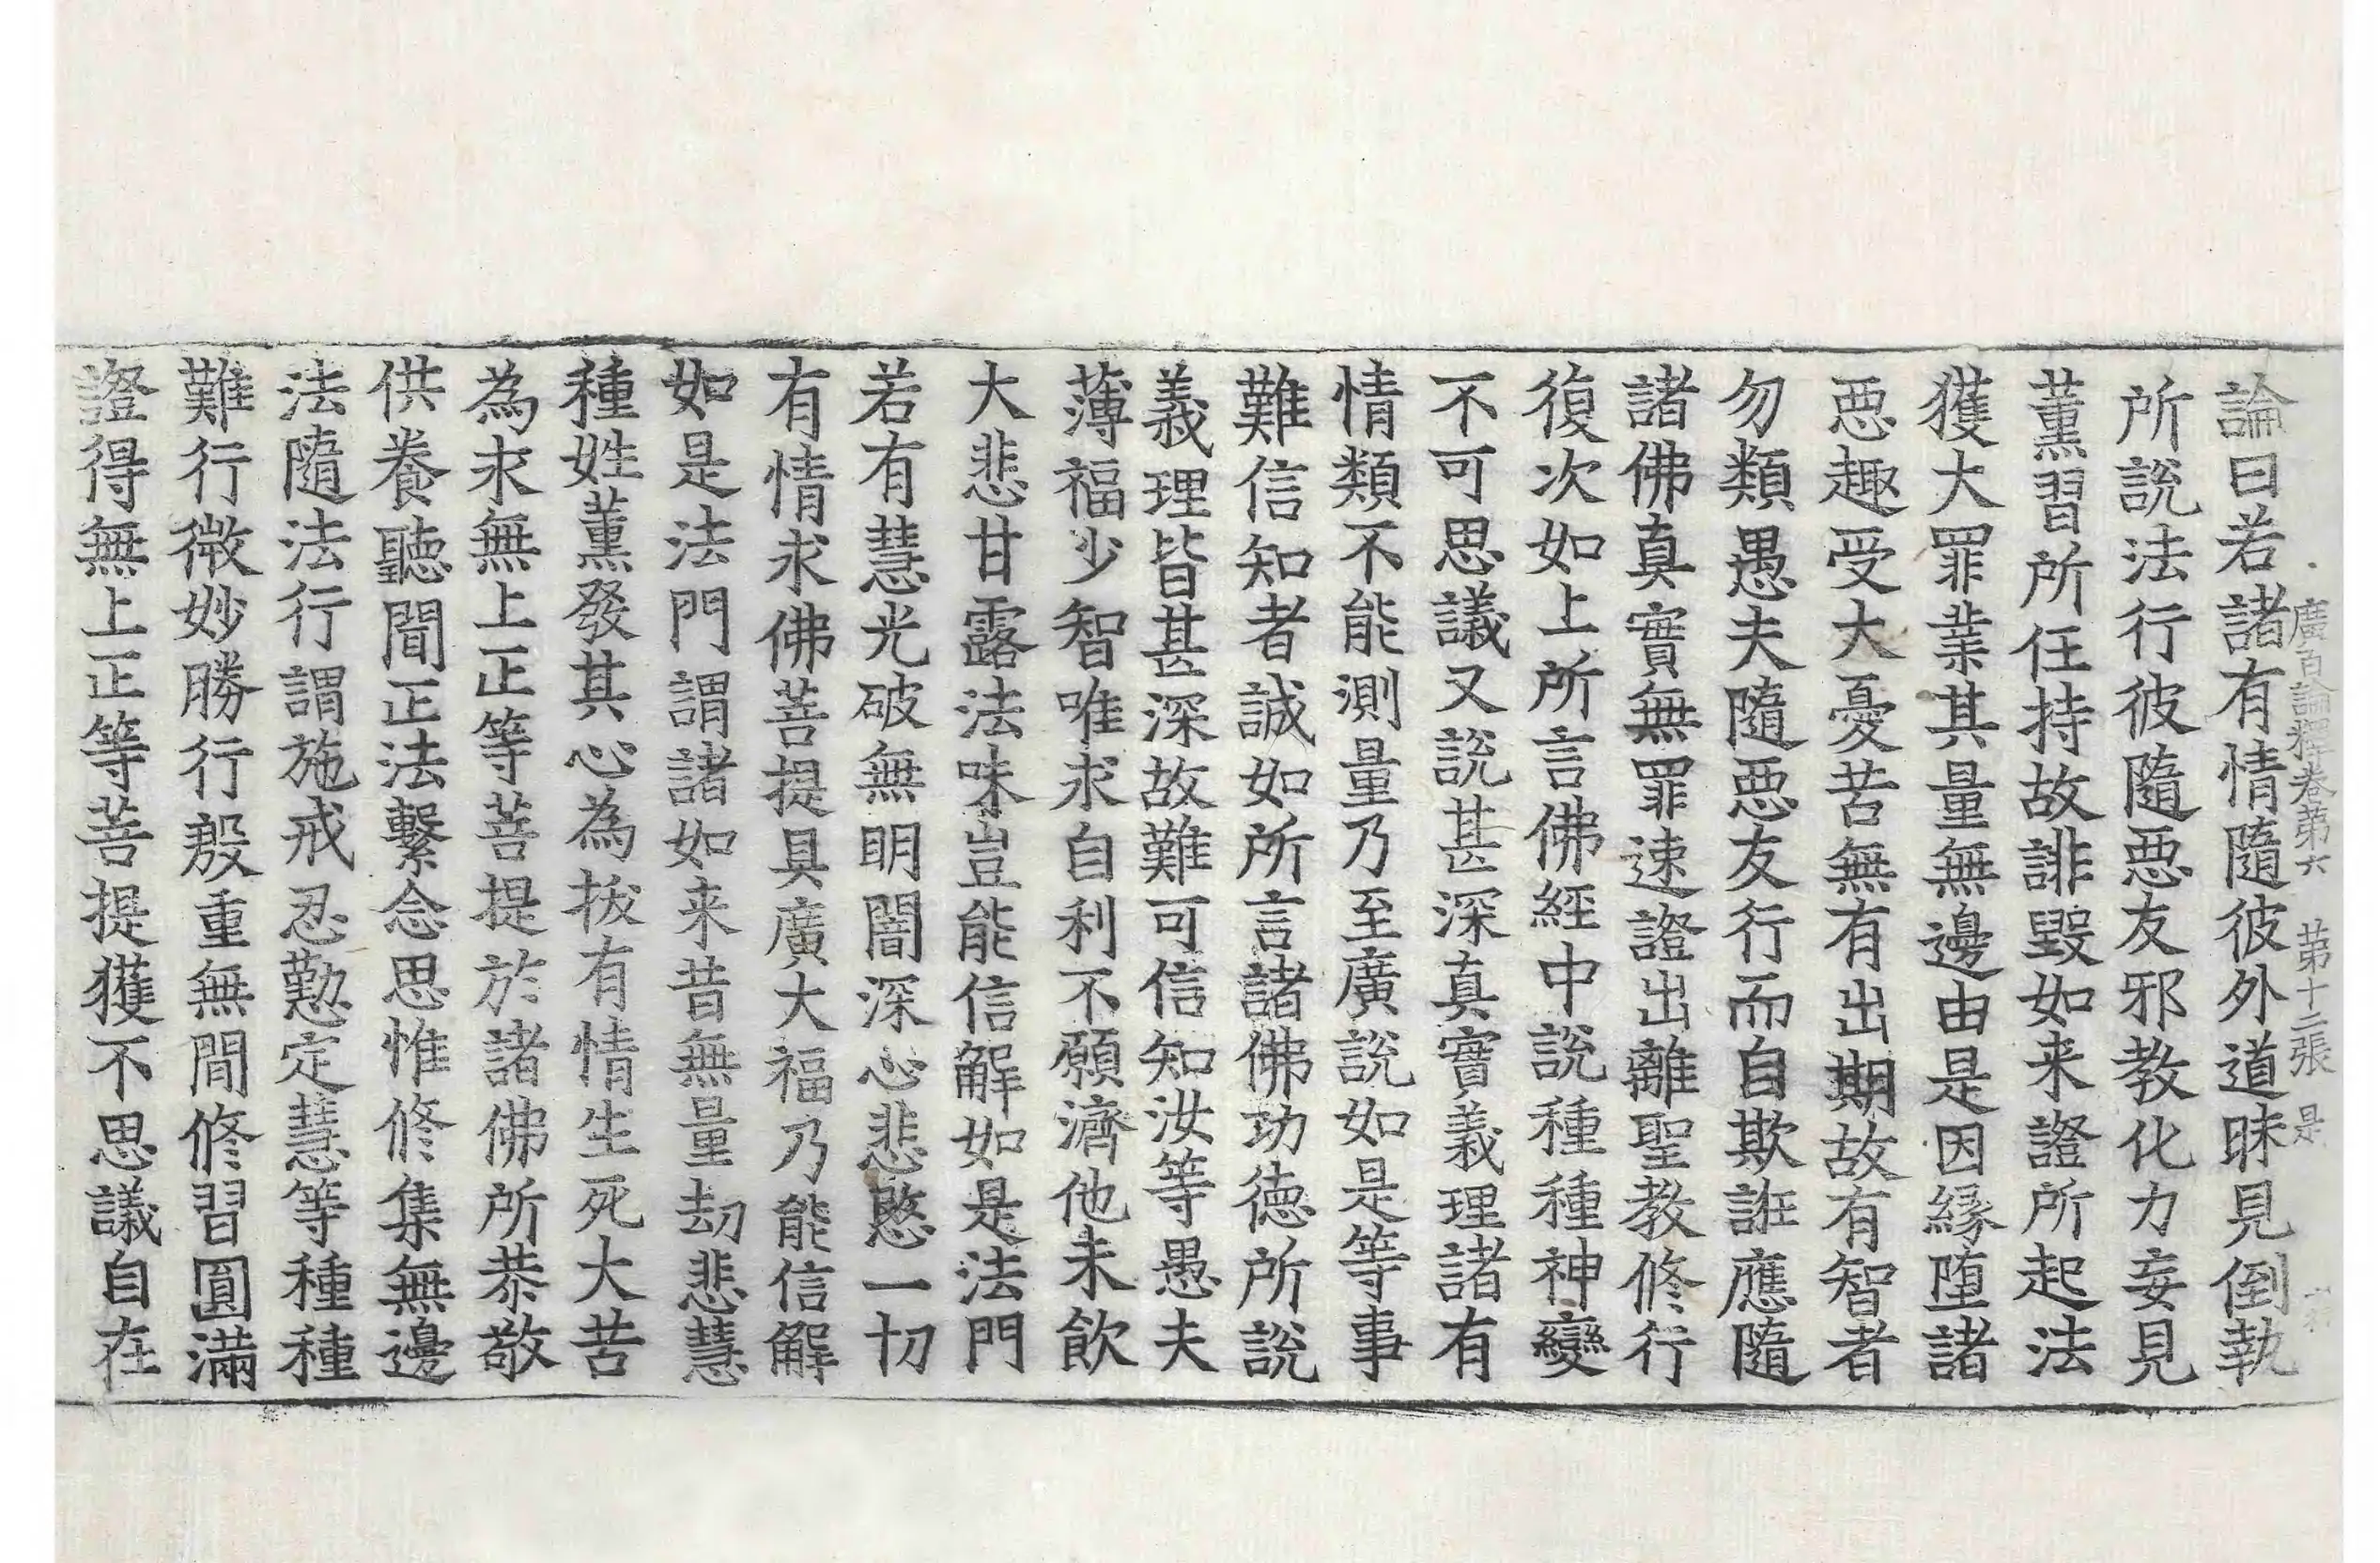 廣百論釋卷第六 第十二張 是
論曰若諸有情隨彼外道昧見倒執
所說法行彼隨惡友邪教化力妄見
薰習所任持故誹毀如来證所起法
獲大罪業其量無邊由是因緣堕諸
惡趣受大憂苦無有出期故有智者
勿類愚夫隨惡友行而自欺誑應隨
諸佛真實無罪速證出離聖教修行
復次如上所言佛經中說種種神變
不可思議又說甚深真實義理諸有
情類不能測量乃至廣說如是等事
難信知者誠如所言諸佛功德所說
義理皆甚深故難可信知汝等愚夫
薄福少智唯求自利不願濟他未飲
大悲甘露法味豈能信解如是法門
若有慧光破無明闇深心悲愍一切
有情求佛菩提具廣大福乃能信解
如是法門謂諸如来昔無量劫悲慧
種姓薰發其心為拔有情生死大苦
為求無上正等菩提於諸佛所恭敬
供養聽聞正法繫念思惟修集無邊
法隨法行謂施戒忍勤定慧等種種
難行微妙勝行殷重無間修習圓滿
證得無上正等菩提獲不思議自在